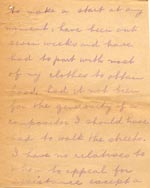 to make a start at any
moment, have been out
seven weeks and have
had to part with most
of my clothes to obtain
food had it not been
for the generosity of
compositor I should have
had to walk the streets.
I have no relatives to
to appeal for
assistance except a